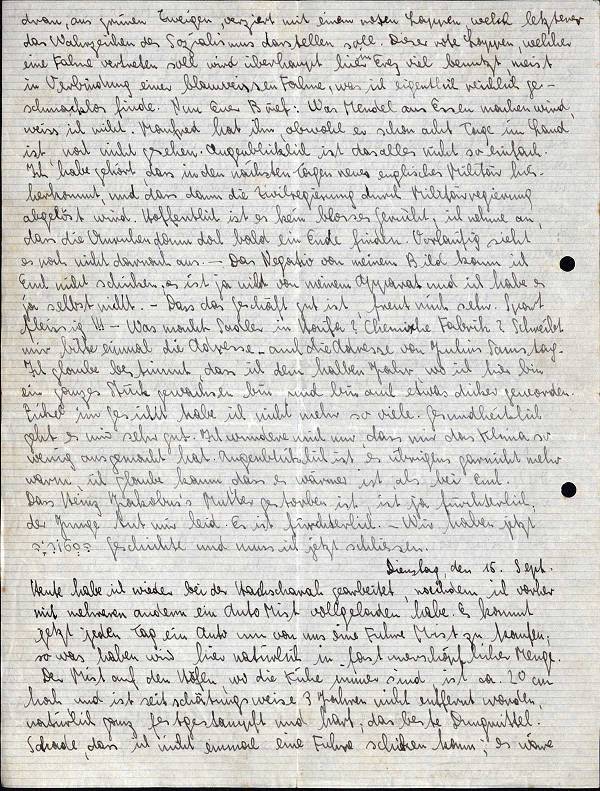 dran, aus grünen Zweigen, verziert mit einem roten Lappen, welch letzterer
das Wahrzeichen des Sozialismus darstellen soll. Dieser rote Lappen, welcher
eine Fahne vertreten soll wird überhaupt hier Erez viel benutzt meist
in Verbindung einer blauweissen Fahne, was ich eigentlich reichlich ge-
schmacklos finde. Nun Euer Brief: Was Mendel aus Essen machen wird,
weiss ich nicht. Manfred hat ihn obwohl er schon acht Tage im Land
ist, noch nicht gesehen. Augenblicklich ist das alles nicht so einfach.
Ich habe gehört, dass in den nächsten Tagen neues englisches Militär hier
herkommt, und dass dann die Zivilregierung durch Militärregierung
abgelöst wird. Hoffentlich ist es kein blosses Gerücht, ich nehme an,
dass die Unruhen dann doch bald ein Ende finden. Vorläufig sieht
es noch nicht darnach aus. – Das Negativ von meinem Bild kann ich
Euch nicht schicken, es ist ja nicht von meinem Apparat und ich habe es
ja selbst nicht. – Dass das Geschäft gut ist, freut mich sehr. Spart
fleissig !!! – Was macht Sadler in Haifa? Chemische Fabrik? Schreibt
mir bitte einmal die Adresse – auch die Adresse von Julius Samstag.
Ich glaube bestimmt dass ich dem halben Jahr wo ich hier bin
ein ganzes Stück gewachsen bin und bin auch etwas dicker geworden.
im Gesicht habe ich nicht mehr so viele. Gesundheitlich
geht es mir sehr gut. Ich wundere mich nur dass mir das Klima so
wenig ausgemacht hat. Augenblicklich ist es übrigens garnicht mehr
warm, ich glaube kaum dass es wärmer ist als bei Euch.
Dass Heinz Jakobus's Mutter gestorben ist, ist ja fürchterlich;
der Junge tut mir leid. Es ist fürchterlich. – Wir haben jetzt
Geschichte und muss ich jetzt schliessen.
Dienstag den 15. Sept.
Heute habe ich wieder bei der Hachscharah gearbeitet, nachdem ich vorher
mit mehreren andern ein Auto Mist vollgeladen habe. Es kommt
jetzt jeden Tag ein Auto um von uns eine Fuhre Mist zu kaufen;
so was haben wir hier natürlich in fast unerschöpflicher Menge.
Der Mist auf den Höfen wo die Kühe immer sind, ist ca. 20 cm
hoch und ist seit schätzungsweise 3 Jahren nicht entfernt worden,
natürlich ganz festgestampft und hart, das beste Düngmittel.
Schade, dass ich nicht einmal eine Fuhre schicken kann; es wäre